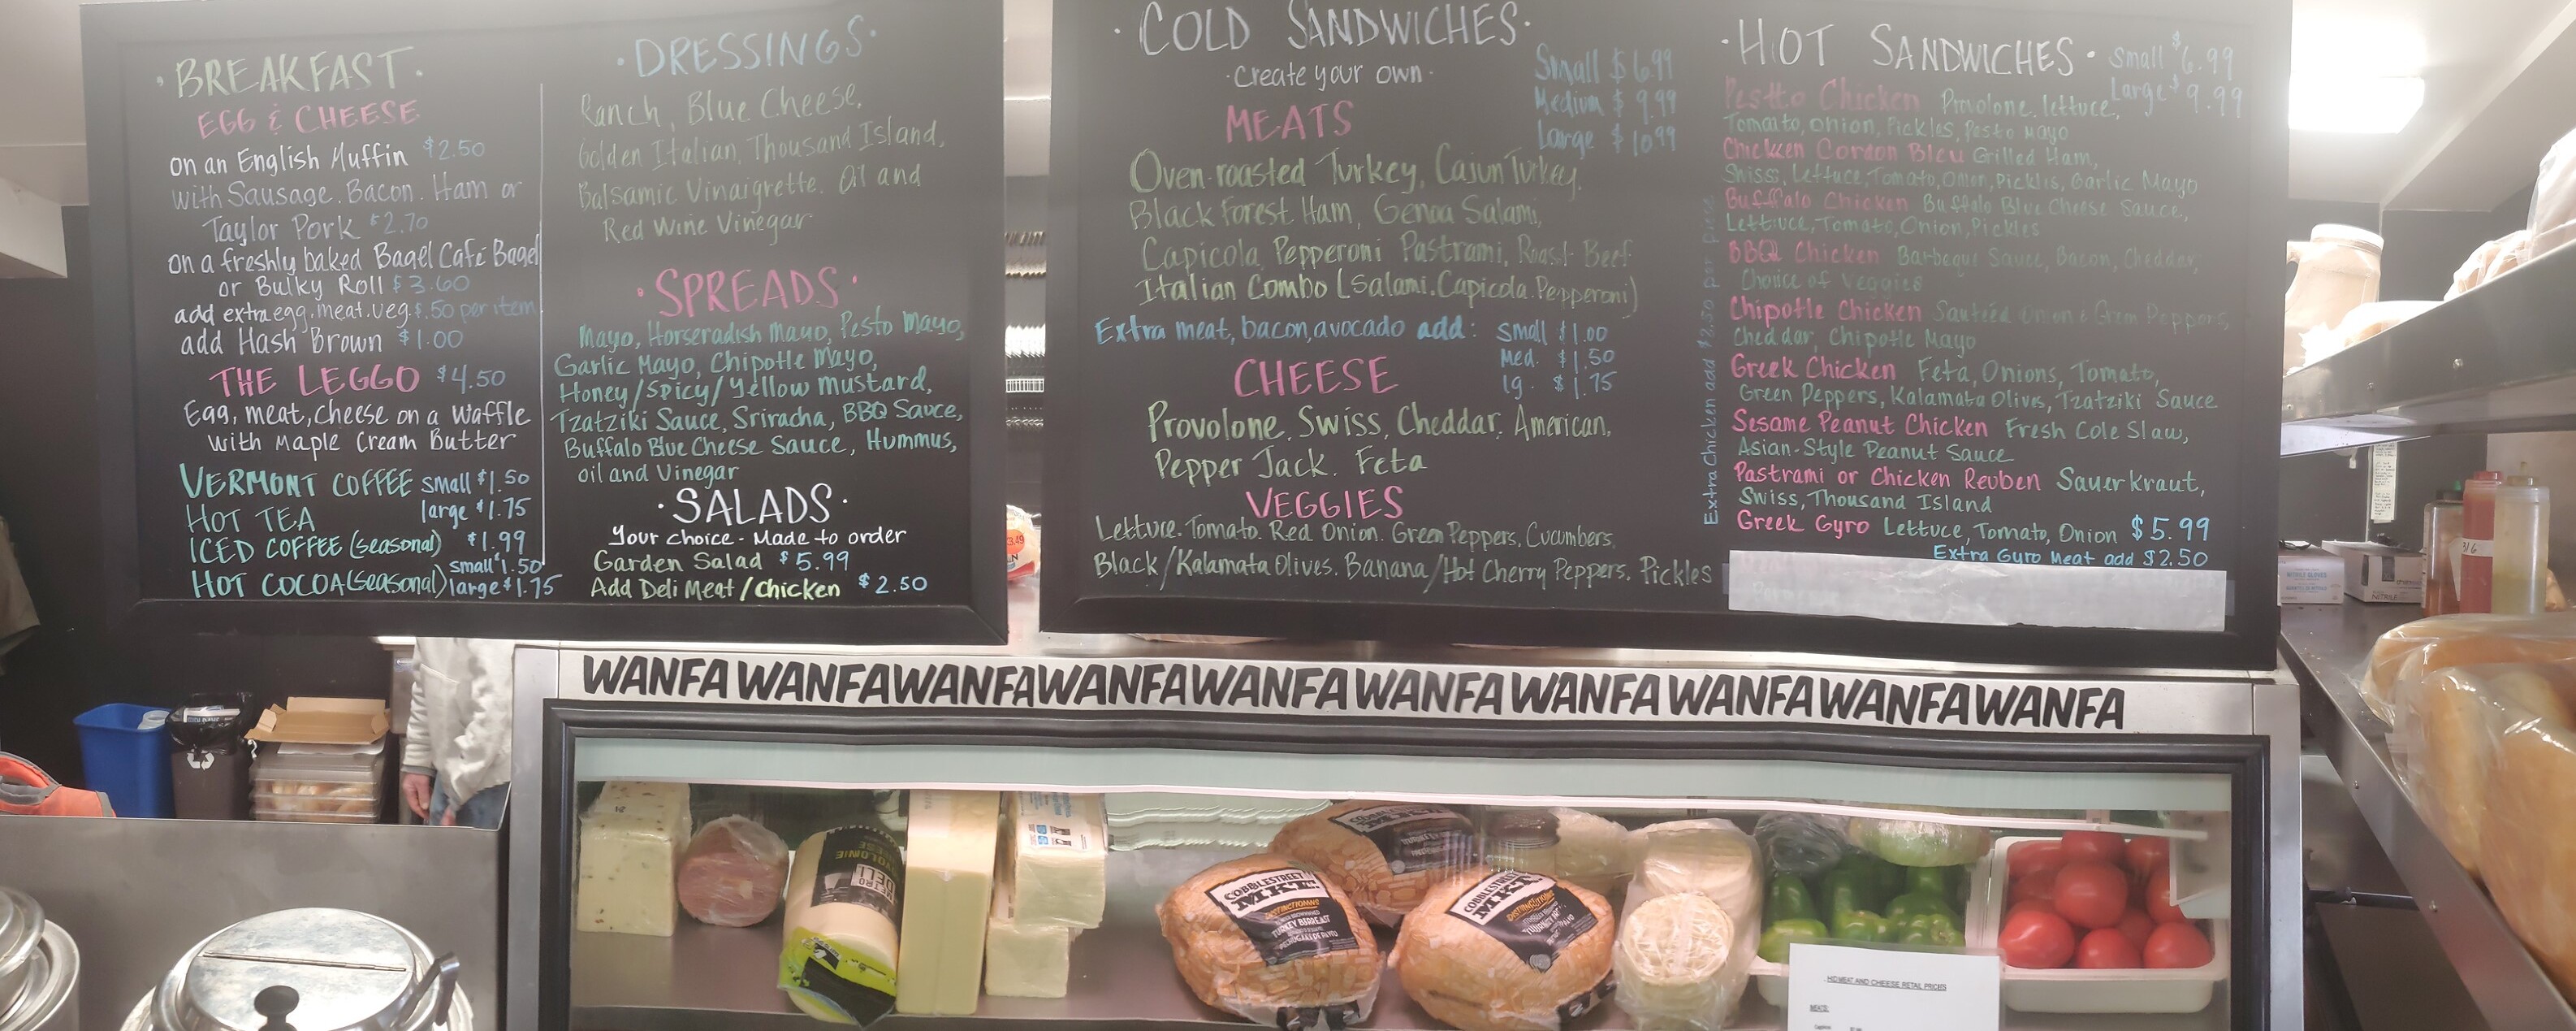 · BREAKFAST ·
EGG & CHEESE
on an English Muffin $2.50
with Sausage. Bacon. Ham or
Taylor Pork $2.70
on a freshly baked Bagel Café Bagel
or Bulky Roll $3.60
add extra egg. meat. veg. $.50 per item
add Hash Brown $1.00
THE LEGGO $4.50
Egg, meat, cheese on a Waffle
with Maple Cream Butter
VERMONT COFFEE small $1.50
large $1.75
HOT TEA
ICED COFFEE (seasonal) $1.99
small $1.50
HOT COCOA (seasonal) large $1.75
· DRESSINGS ·
Ranch, Blue Cheese,
Golden Italian, Thousand Island,
Balsamic Vinaigrette. Oil and
Red Wine Vinegar
· SPREADS ·
Mayo, Horseradish Mayo, Pesto Mayo,
Garlic Mayo, Chipotle Mayo,
Honey/Spicy/Yellow Mustard,
Tzatziki Sauce, Sriracha, BBQ Sauce,
Buffalo Blue Cheese Sauce, Hummus,
oil and Vinegar
· SALADS ·
Your choice - Made to order
Garden Salad $5.99
Add Deli Meat / Chicken $2.50
· COLD SANDWICHES ·
· Create your own ·
Small $6.99
Medium $9.99
Large $10.99
MEATS
Oven-roasted Turkey, Cajun Turkey,
Black Forest Ham, Genoa Salami,
Capicola, Pepperoni Pastrami, Roast Beef
Italian Combo (Salami. Capicola. Pepperoni)
Extra meat, bacon, avocado add: Small $1.00
Med. $1.50
lg. $1.75
CHEESE
Provolone, Swiss, Cheddar, American,
Pepper Jack. Feta
VEGGIES
Lettuce. Tomato. Red Onion. Green Peppers, Cucumbers,
Black/Kalamata Olives. Banana/Hot Cherry Peppers. Pickles
Extra Chicken add $2.50 per piece
· HOT SANDWICHES · Small $6.99
Large $9.99
Pestto Chicken Provolone, lettuce,
Tomato, onion, Pickles, Pesto Mayo
Chicken Cordon Bleu Grilled Ham,
Swiss, Lettuce, Tomato, Onion, Pickles, Garlic Mayo
Buffalo Chicken Buffalo Blue Cheese Sauce,
Lettuce, Tomato, Onion, Pickles
BBQ Chicken Barbeque Sauce, Bacon, Cheddar,
Choice of Veggies
Chipotle Chicken Sauteed Onion & Green Peppers,
Cheddar, Chipotle Mayo
Greek Chicken Feta, Onions, Tomato,
Green Peppers, Kalamata Olives, Tzatziki Sauce
Sesame Peanut Chicken Fresh Cole Slaw,
Asian-Style Peanut Sauce
Pastrami or Chicken Reuben Sauerkraut,
Swiss, Thousand Island
Greek Gyro Lettuce, Tomato, Onion $5.99
Extra Gyro Meat add $2.50
WANFA WANFA WANFA WANFA WANFA WANFA WANFA WANFA WANFA WANFA
METRO
DELI
COBBLESTREET
MKT
DISTINCTIONS
TURKEY BREAST
COBBLESTREET
MKT
DISTINCTIONS
MEAT AND CHEESE RETAIL PRICES
MEATS: